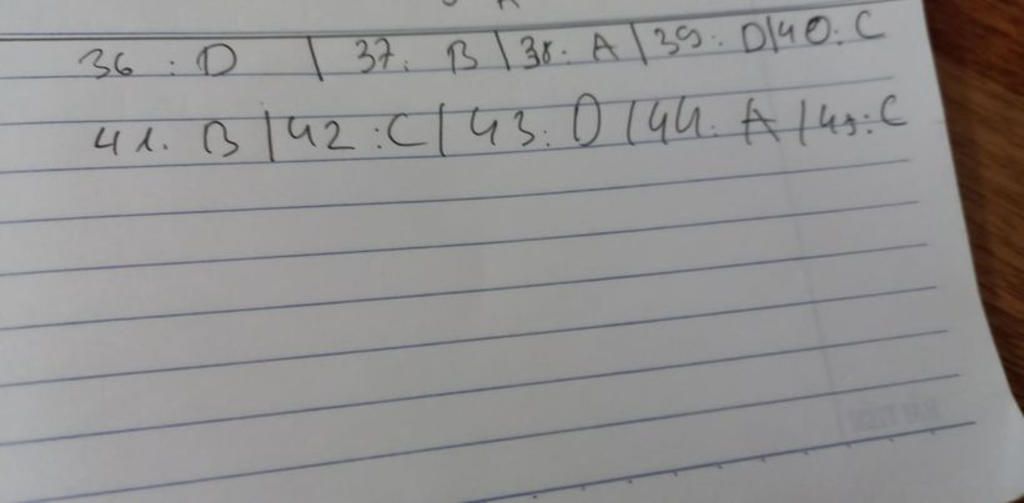 36 : D | 37. B | 38. A | 39. D | 40. C
41. B | 42 : C | 43. D | 44. A | 45: C